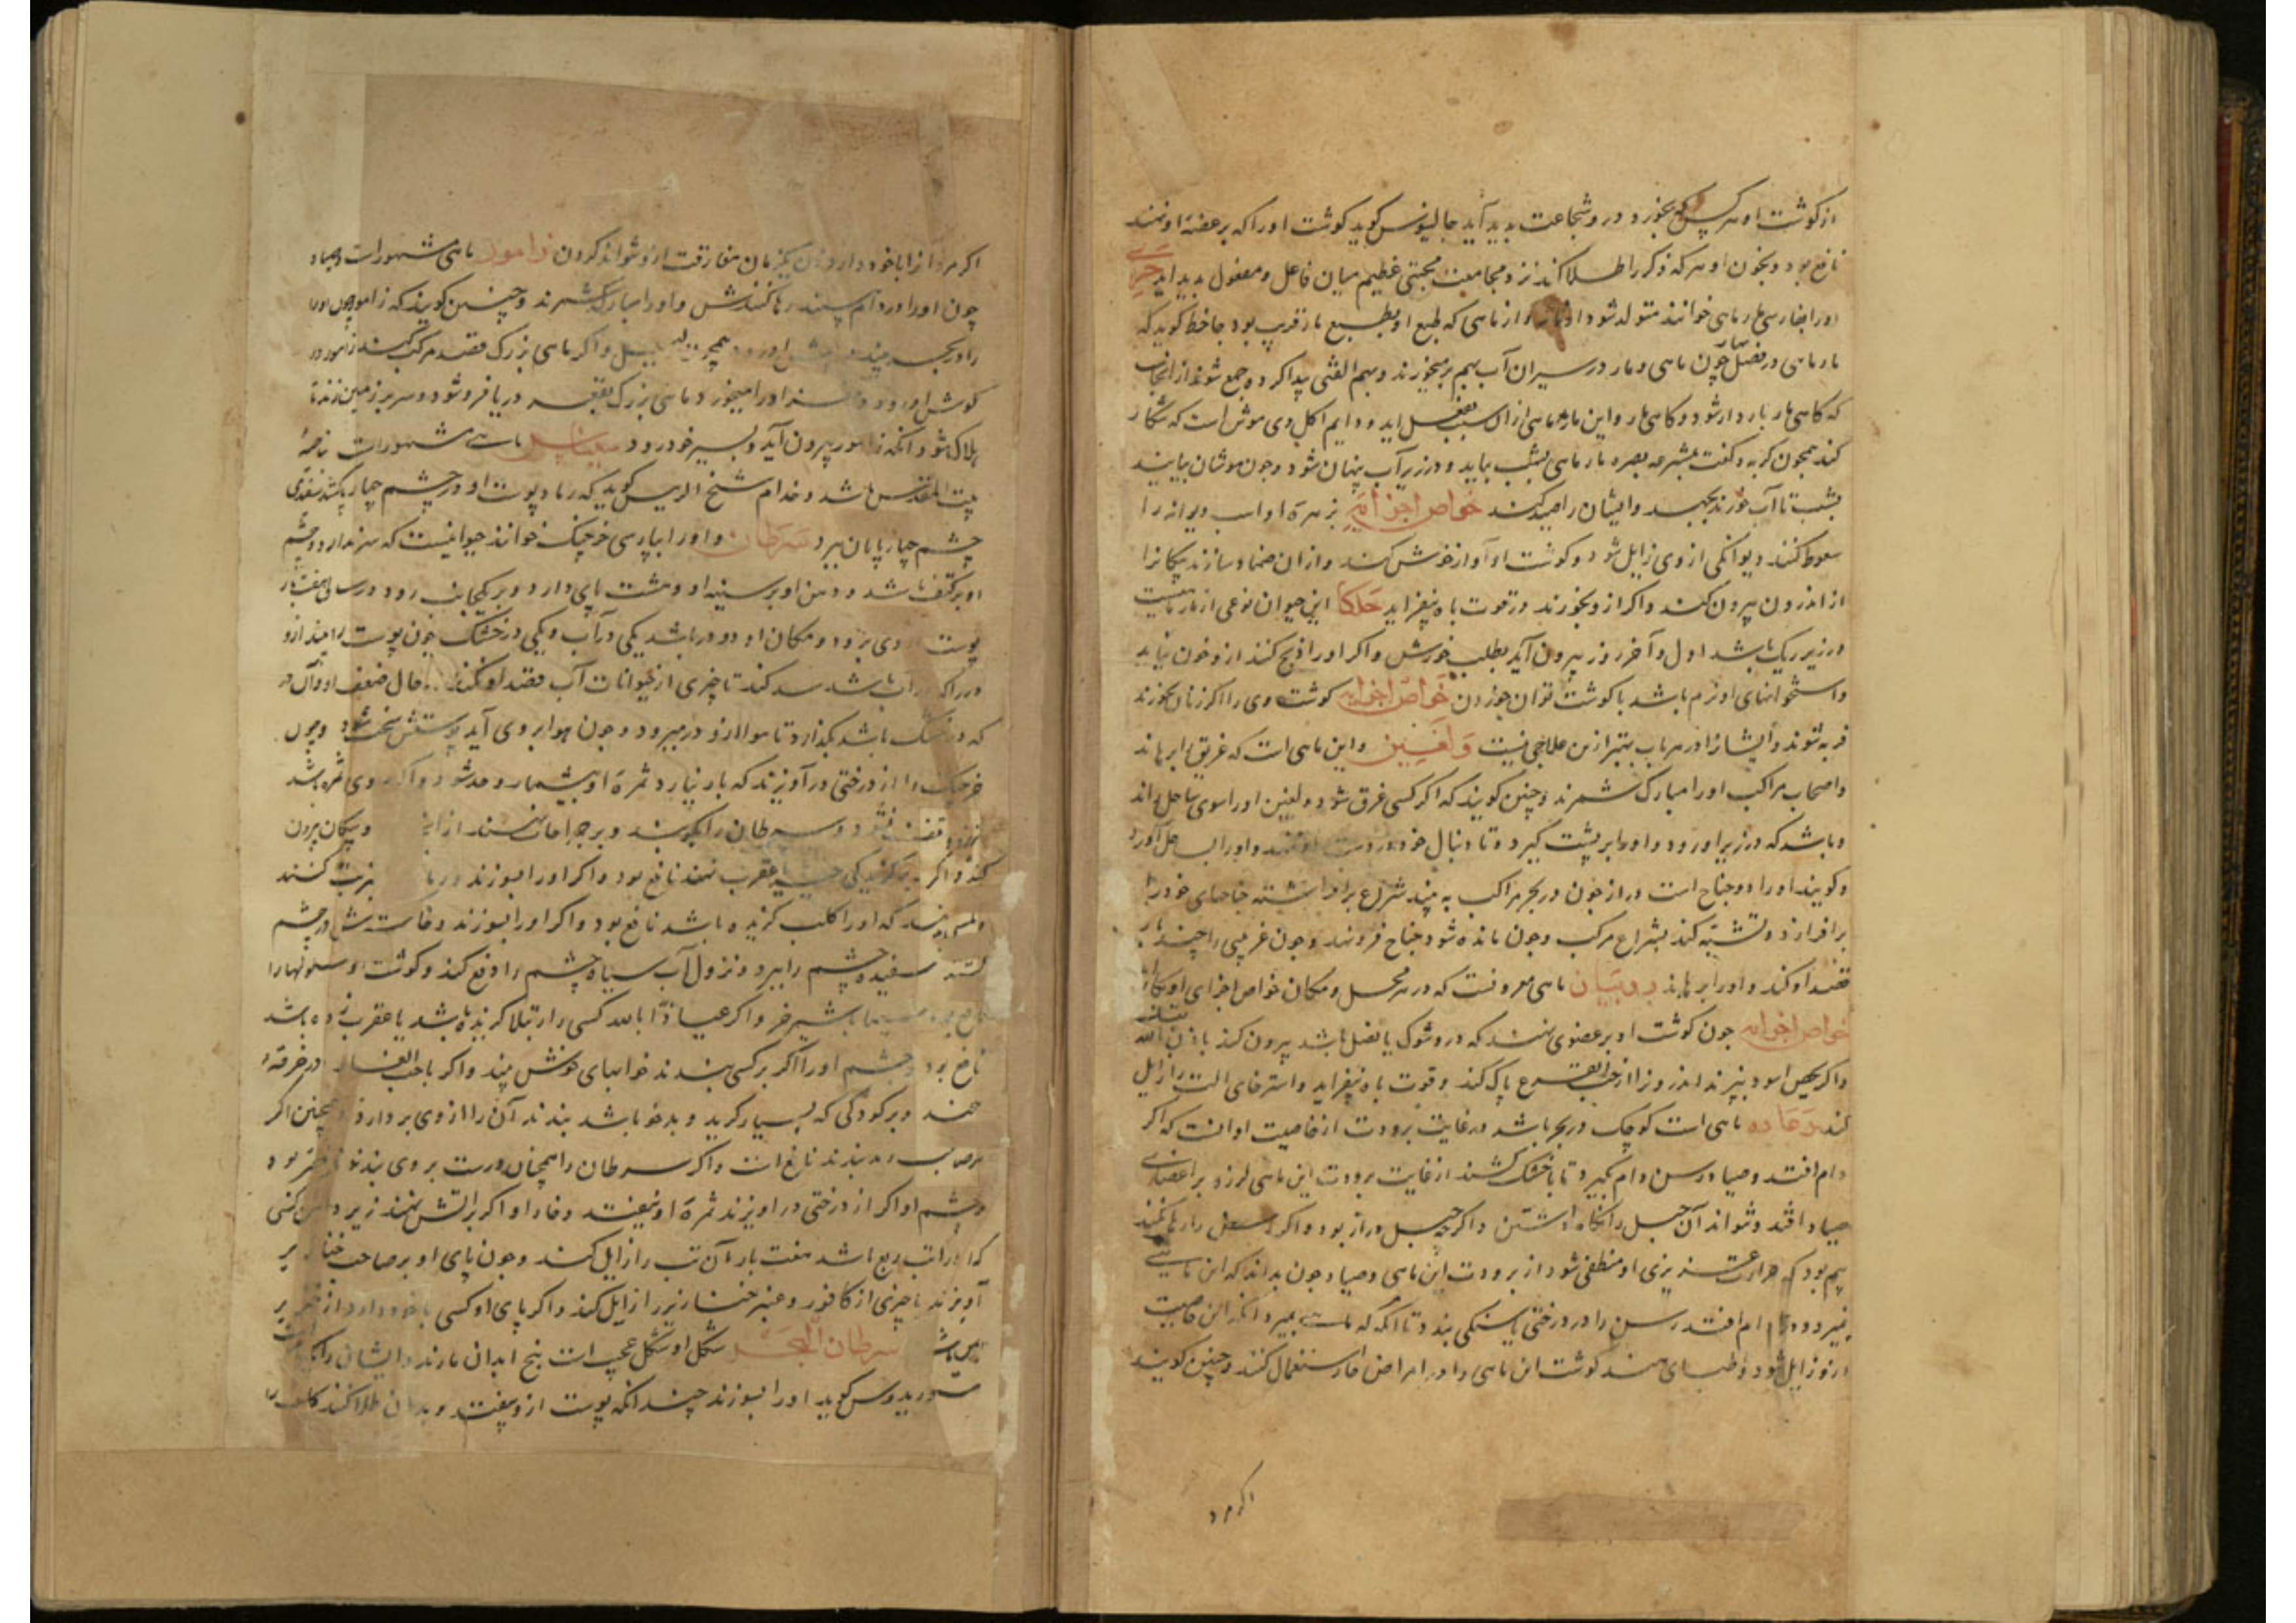 از گوشت او هر کس که بخورد درو شجاعت بدید آید جالینوس کوید کوشت اورا که بر عضهٔ او نهند
نافع بود و بخون او هر که ذکر را طلا کند نزد مجامعت محبتی عظیم میان فاعل و مفعول بدید اید جری
اورا بفارسی مار ماهی خوانند متولد شود از مار و از ماهی که طبع او بطبع مار قریب بود جاحظ کوید که
مار ماهی در فصل چون ماهی و مار در سیران آب بهم بر میخورند و بهم الفتی پیدا کرده جمع شوند از انجاست
که کاهی مار باردار شود و کاهی مار و این مار ماهی از ان سبب بفعل اید و دایم اکل وی موش است که شکار
کند همچون کربه و کفت بصره مار ماهی بشب بیاید و در زیر آب پنهان شود و چون موشان بیایند
بشب تا آب خورند بجهد و ایشان را صید کند خواص اجزایه زهرهٔ او اسب دیوانه را
سعوط کنند دیوانکی از وی زایل شود و کوشت او آواز خوش کند و از ان ضماد سازند پیکانرا
از اندرون بیرون کند و اکر ازو بخورند در قوت باه بیفزاید حلکا این حیوان نوعی از مار ماهیست
در زیر ریک باشد اول و آخر روز بیرون آید بطلب خورش و اکر اورا ذبح کنند ازو خون نیاید
و استخوانهای او نرم باشد با کوشت توان خوردن خواص اجزایه کوشت وی را اکر زنان بخورند
فربه شوند و ایشانرا در هر باب بهتر ازین علاجی نیست دلفین و این ماهی است که غریق را برهاند
و اصحاب مراکب اورا مبارک شمرند و چنین کویند که اکر کسی غرق شود دلفین اورا سوی ساحل راند
و باشد که در زیر او رود و اورا بر پشت کیرد و تا دنبال خود در دست او نهد و اورا بساحل آورد
و کویند اورا دو جناح است دراز چون در بحر مراکب به بیند شراع برافراشته جناحهای خود را
برافرازد و تشبه کند بشراع مرکب و چون مانده شود جناح فرو نهد و چون غریبی را چند بار
قصد او کند و اورا برهاند روبیان ماهی معروفست که در هر محل و مکان خواص اجزای او بکار
خواص اجزایه چون کوشت او بر عضوی نهند که درو شوک یا نصل باشد بیرون کند باذن الله
و اکر بحمص اسود بپزند اندرون را از حب القرع پاک کند و قوت باه بیفزاید و استرخای الت را زایل
کند رعاده ماهی است کوچک در بحر باشد در غایت برودت از خاصیت او انست که اکر
دام افتد و صیاد رسن دام بکیرد تا باخشک کشند از غایت برودت این ماهی لرزه بر اعضای
صیاد افتد و نتواند آن حبل را نکاه داشتن و اکر چه حبل دراز بود و اکر حبل را رها نکند
بیم بود که حرارت غریزی او منطفی شود از برودت این ماهی و صیاد چون بداند که این ماهی
در دام افتد رسن را در درختی یا سنکی بندد تا انکه که ماهی بمیرد و انکه این خاصیت
ازو زایل شود و طبای هند کوشت این ماهی را در امراض حار استعمال کنند و چنین کویند
اکر مرد
اکر مرد آنرا با خود دارد زن یکزمان مفارقت ازو نتواند کردن زامور ماهی مشهور است و صیاد
چون اورا در دام بیند رها کنندش و اورا مبارک شمرند و چنین کویند که زامور چون اورا
را در بحر بیند و اکر ماهی بزرک قصد مرکب کند زامور در
کوش او رود و مغز اورا میخورد ماهی بزرک بقعر دریا فرو شود و سر بر زمین زند تا
هلاک شود انکه زامور بیرون آید و بسیر خود رود ماهی مشهور است ناحیهٔ
بیت المقدس باشد و خدام شیخ الریس کوید که رماد پوست او در چشم چهارپا کشند سفیدی
چشم چهارپایان ببرد سرطان و اورا بپارسی خرچنک خوانند حیوانیست که سر ندارد و چشم
او بر کتف باشد و دهن او بر سینه او و هشت پای دارد و بر یکجانب رود و در سالی هفت بار
پوست از وی برود و مکان او دو در باشد یکی در آب و یکی در خشک چون پوست را بیندازد
در را که در آب باشد سد کند تا چیزی از حیوانات آب قصد او نکند در حال ضعف او و آن در
که در خشک باشد بکذارد تا هوا از در میرود و چون هوا بر وی آید پوستش سخت شود و چون
خرچنک را از درختی در آویزند که بار نیارد ثمرهٔ او بیشمار و حد شود و اکر بر وی ثمره باشد
و سرطان را بکوبند و بر جراحات نهند از او و پیکان بیرون
کند و اکر بر کزیدکی حیه یا عقرب نهند نافع بود و اکر اورا بسوزند شربت کنند
که اورا کلب کزیده باشد نافع بود و اکر اورا بسوزند و خاستش در چشم
کشند سفیده چشم را ببرد و نزول آب سیاه چشم را دفع کند و کوشت او
نافع بود سیما باشیر خر و اکر عیاذاً بالله کسی را رتیلا کزیده باشد یا عقرب زده باشد
نافع بود چشم اورا اکر بر کسی بندند خوابهای خوش بیند و اکر با حب الغار در خرقهٔ
نهند و بر کودکی که بسیار کرید و بدخو باشد بندند آن را از وی بر دارد و همچنین اکر
بندند نافع است و اکر سرطان را همچنان درست بر وی بندند بود
چشم او اکر از درختی در اویزند ثمرهٔ او نیفتد و فاد او اکر بر آتش نهند زیر دامن کسی
که اورا تب ربع باشد هفت بار آن تب را زایل کند و چون پای او بر صاحب خنازیر
آویزند با چیزی از کافور و عنبر خنازیر را زایل کند و اکر پای او کسی با خود دارد از خنازیر
ایمن باشد سرطان البحر شکل او شکل عجیب است پنج ابدان مارند و ایشان را یک سر است
کوید اورا بسوزند چندانکه پوست ازو بیفتد و بدان طلا کنند کلف را